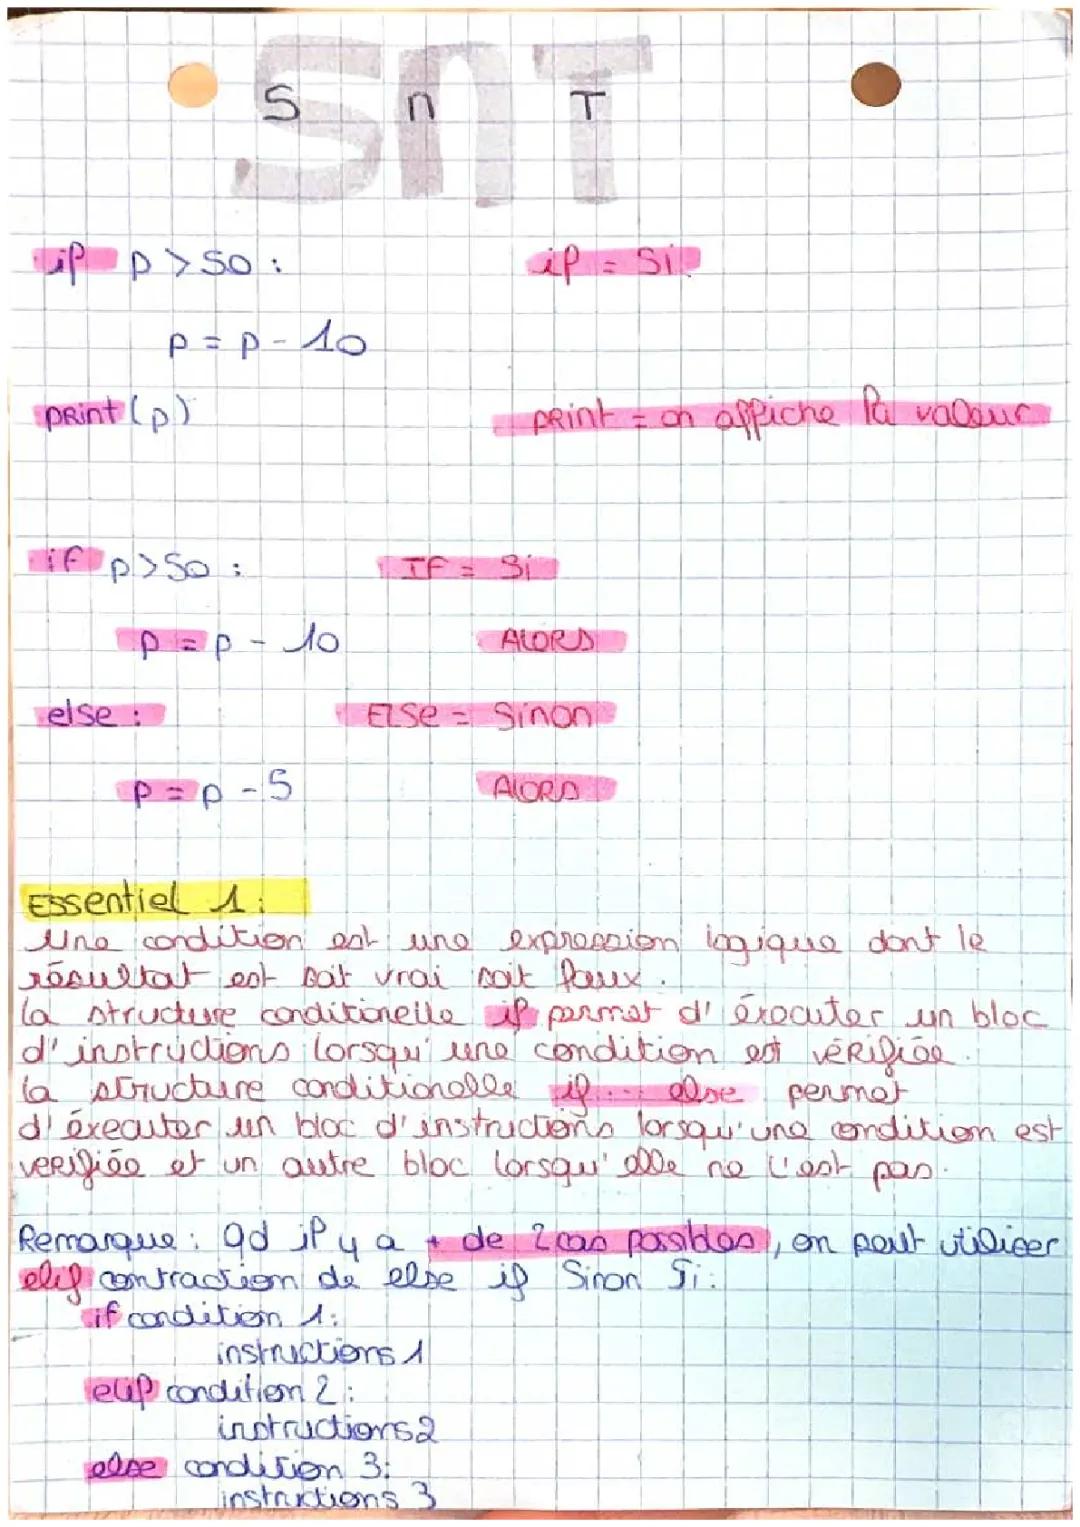 SnT
S n T
if p > 50 : if = Si
p = p - 10
print (p) print = on affiche la valeur
if p > 50 : IF = Si
p = p - 10 ALORS
else : ELSE = Sinon
p = p - 5 ALORS
Essentiel 1 :
Une condition est une expression logique dont le
résultat est soit vrai soit faux.
La structure conditionelle if permet d'éxecuter un bloc
d'instructions lorsqu'une condition est vérifiée.
La structure conditionelle if ... else permet
d'éxecuter un bloc d'instructions lorsqu'une condition est
verifiée et un autre bloc lorsqu'elle ne l'est pas.
Remarque : qd il y a + de 2 cas possibles, on peut utiliser
elif contraction de else if Sinon Si :
if condition 1 :
instructions 1
elif condition 2 :
instructions 2
else condition 3 :
instructions 3